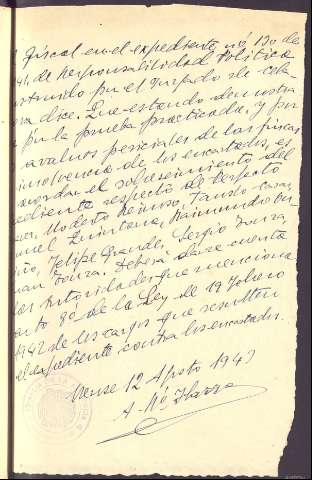 Fiscal en el expediente nº 130 de
de Responsabilidad Política
instruido por el Juzgado de esta
dice: Que estando demostra
por la prueba practicada, y por
avaluos periciales de las fincas
insolvencia de los encartados, es
acordar el sobreseimiento del
expediente respecto de Perfecto
Modesto Reinoso, Fausto Casas,
Manuel Quintana, Raimundo
Felipe Grande, Sergio Souza,
Juan Souza. Deberá darse cuenta
las Autoridades que menciona
80 de la Ley de 19 Febrero
1942 de los cargos que resulten
el expediente contra los encartados.
Orense 12 Agosto 1943